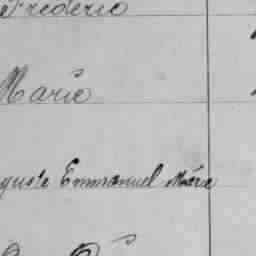 Frederic
Marie
guste Emmanuel Marie